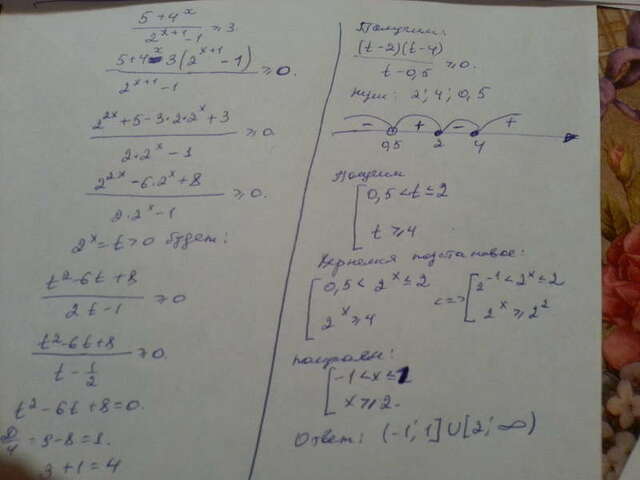 (5+4^x)/(2^(x+1)-1) ≥ 3.
(5+4^x-3(2^(x+1)-1))/(2^(x+1)-1) ≥ 0.
(2^(2x)+5-3·2·2^x+3)/(2·2^x-1) ≥ 0
(2^(2x)-6·2^x+8)/(2·2^x-1) ≥ 0.
2^x = t > 0 будет:
(t²-6t+8)/(2t-1) ≥ 0
(t²-6t+8)/(t-1/2) ≥ 0.
t²-6t+8=0.
D/4 = 9-8=1.
3+1=4
Получим:
((t-2)(t-4))/(t-0,5) ≥ 0.
нули: 2; 4; 0,5
- + - +
0,5 2 4
Получим
[0,5 < t ≤ 2
t ≥ 4
Вернемся подстановкое:
[0,5 < 2^x ≤ 2 <=> [2^(-1) < 2^x ≤ 2
2^x ≥ 4 2^x ≥ 2²
получаем:
[-1 < x ≤ 1
x ≥ 2.
Ответ: (-1; 1]∪[2; ∞)